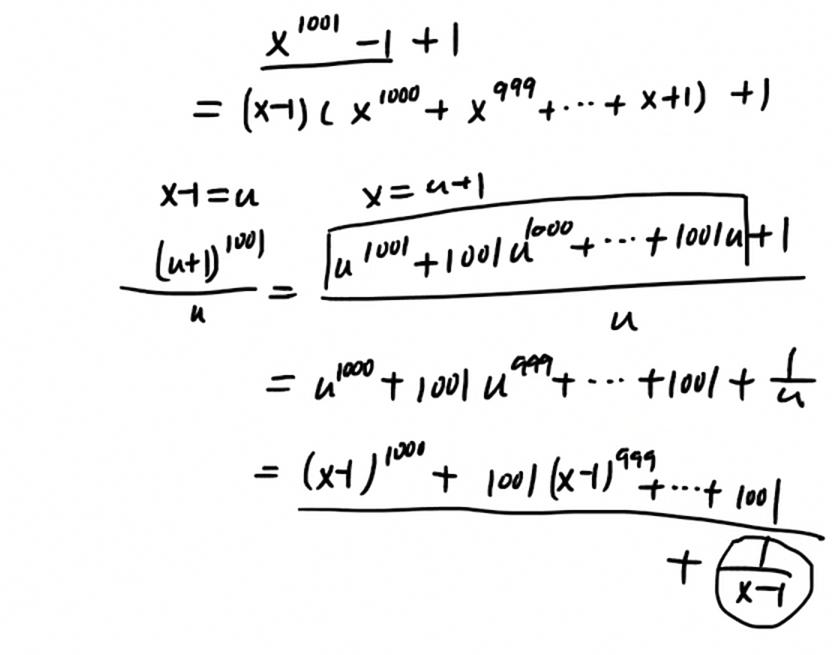 x^1001 - 1 + 1
= (x-1)(x^1000 + x^999 + ... + x+1) + 1
x-1 = u    x = u+1
(u+1)^1001 / u = (u^1001 + 1001u^1000 + ... + 1001u + 1) / u
= u^1000 + 1001u^999 + ... + 1001 + 1/u
= (x-1)^1000 + 1001(x-1)^999 + ... + 1001
+ 1/(x-1)